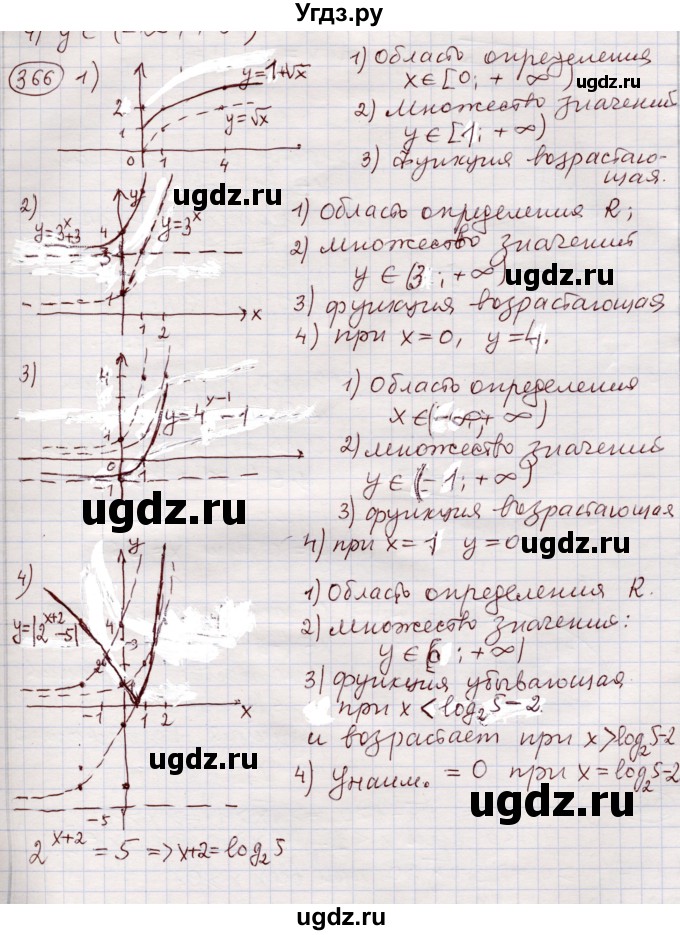 Угдз.ру
366 1)
y=1+√x
y=√x
2
1
0 1 4
1) Область определения
x∈[0; +∞)
2) множество значений
y∈[1; +∞)
3) функция возрастаю-
щая.
ugdz.ru
2)
y
y=3^x+3
y=3^x
4
3
1
1 2 x
1) Область определения R;
2) множество значений
y∈(3; +∞)
3) функция возрастающая
4) при x=0, y=4.
ugdz.ru
ugdz.ru
3)
4
1
0 1
-1
y=4^{x-1}-1
1) Область определения
x∈(-∞; +∞)
2) множество значений
y∈(-1; +∞)
3) функция возрастающая
4) при x=1 y=0
ugdz.ru
ugdz.ru
4)
y
y=|2^{x+2}-5|
4
3
2
-1 1 2 x
-5
1) Область определения R.
2) множество значения:
y∈[0; +∞)
3) функция убывающая
при x<log₂5-2
и возрастает при x>log₂5-2
4) yнаим. = 0 при x=log₂5-2
ugdz.ru
ugdz.ru
2^{x+2}=5=>x+2=log₂5
ugdz.ru